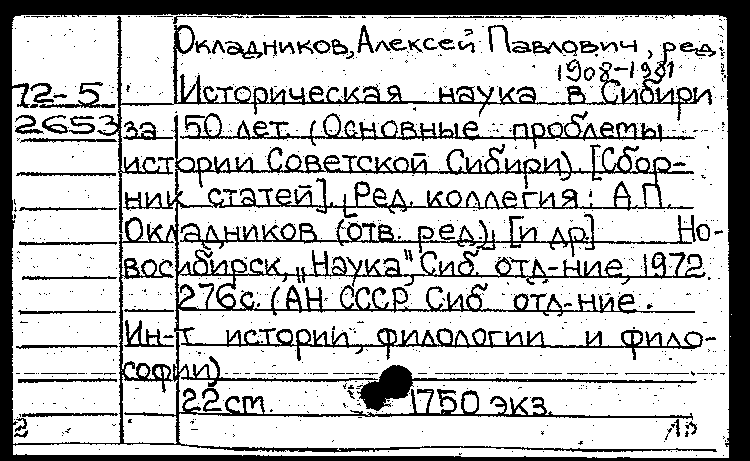 Окладников, Алексей Павлович, ред.
1908-1981
72-5 Историческая наука в Сибири
2653 за 50 лет. (Основные проблемы
истории Советской Сибири). [Сбор-
ник статей]. [Ред. коллегия: А.П.
Окладников (отв. ред.)] [и др.] Но-
восибирск, „Наука", Сиб. отд-ние, 1972.
276с. (АН СССР. Сиб. отд-ние.
Ин-т истории, филологии и фило-
софии)
22см. 1750 экз.